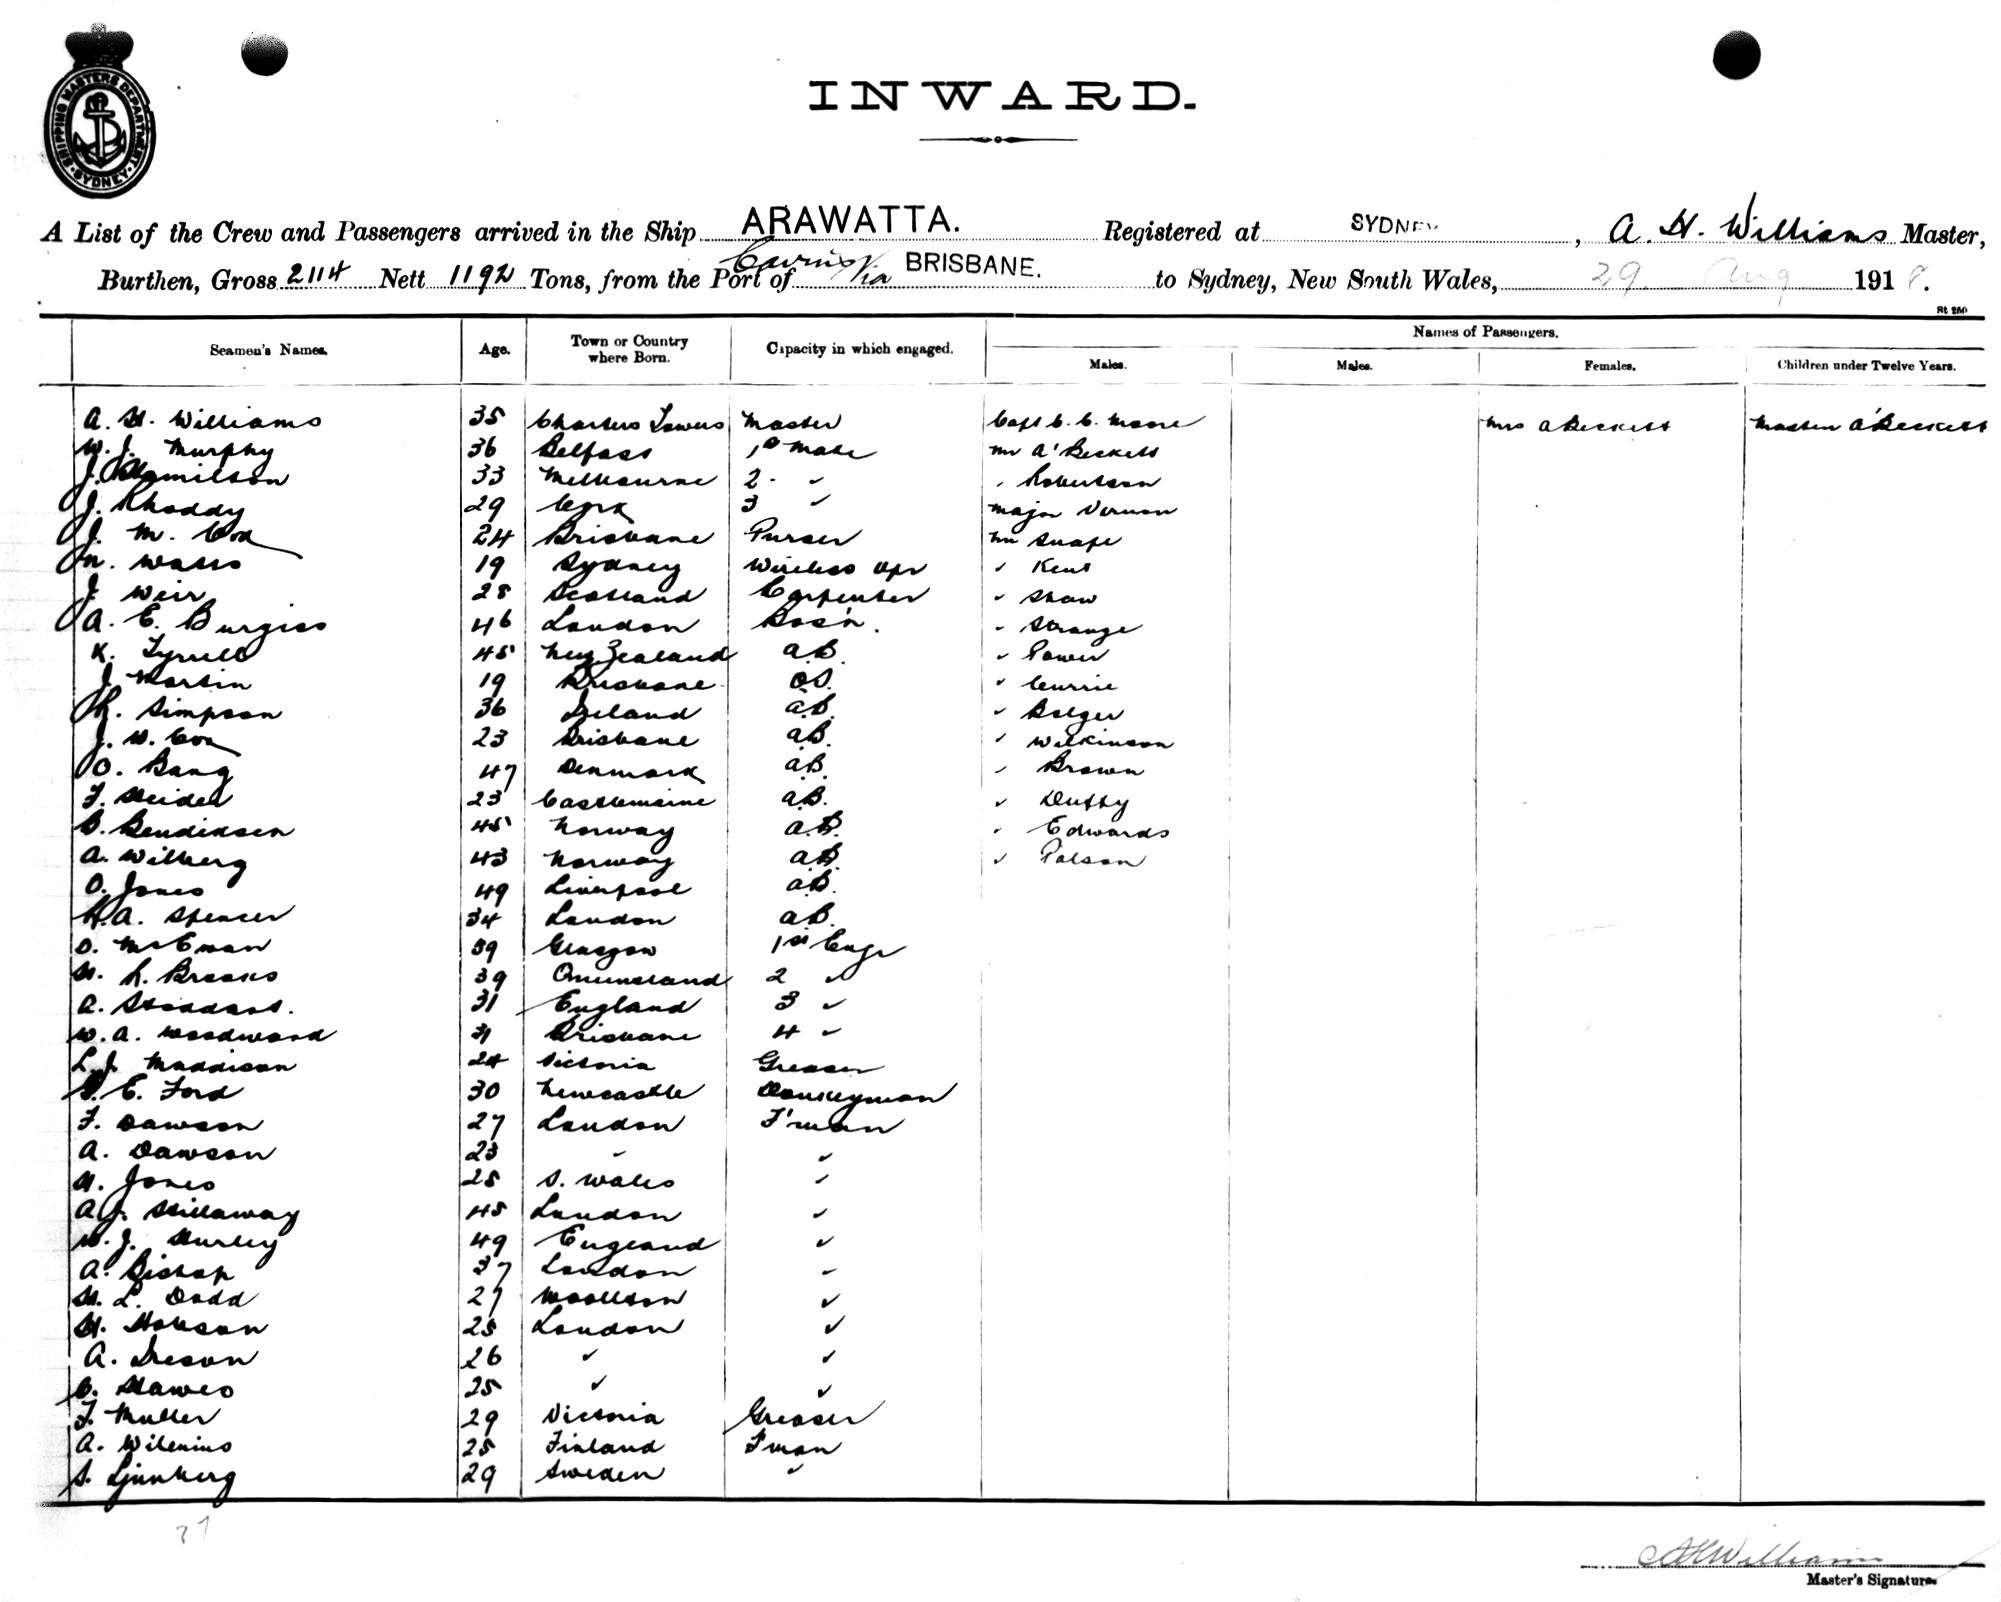 SHIPPING MASTERS DEPARTMENT
SYDNEY
INWARD.
A List of the Crew and Passengers arrived in the Ship ARAWATTA. Registered at SYDNEY, A. H. Williams Master,
Burthen, Gross 2114 Nett 1192 Tons, from the Port of Cairns Via BRISBANE. to Sydney, New South Wales, 29 Aug 1918.
Seamen's Names. Age. Town or Country where Born. Capacity in which engaged. Names of Passengers.
Males. Males. Females. Children under Twelve Years.
A. H. Williams 35 Charters Towers Master Capt C. C. Moore Mrs A Beckett Master A'Beckett
W. J. Murphy 36 Belfast 1st Mate Mr A'Beckett
J. Hamilton 33 Melbourne 2 " " Robertson
J. Rhoddy 29 Cork 3 " Major Vernon
J. M. Cox 24 Brisbane Purser Mr Snape
Watts 19 Sydney Wireless Opr " Kent
J. Weir 28 Scotland Carpenter " Shaw
A. E. Burgiss 46 London Bos'n. " Strange
K. Tyrrell 45 New Zealand A.B. " Power
J. Martin 19 Brisbane O.S. " Currie
R. Simpson 36 Ireland A.B. " Bolger
J. W. Cox 23 Brisbane A.B. " Wilkinson
O. Bang 47 Denmark A.B. " Brown
F. Heider 23 Castlemaine A.B. " Duffy
B. Bendiksen 45 Norway A.B. " Edwards
A. Wilberg 43 Norway A.B. " Polson
O. Jones 49 Liverpool A.B.
H. A. Spencer 34 London A.B.
D. McEwan 59 Glasgow 1st Engr
H. R. Brooks 39 Queensland 2 "
A. Stoddart. 31 England 3 "
W. A. Woodward 31 Brisbane 4 "
L. J. Maddison 24 Victoria Greaser
S. E. Ford 30 Newcastle Donkeyman
F. Dawson 27 London F'man
A. Dawson 23 " "
H. Jones 28 S. Wales "
A. J. Stillaway 45 London "
W. J. Hurley 49 England "
A. Bishop 37 London "
H. L. Dodd 27 Woollton "
H. Hobson 25 London "
A. Ireson 26 " "
C. Hawes 25 " "
F. Muller 29 Victoria Greaser
A. Wilenius 25 Finland F'man
S. Ljunberg 29 Sweden "
37
AHWilliams
Master's Signature